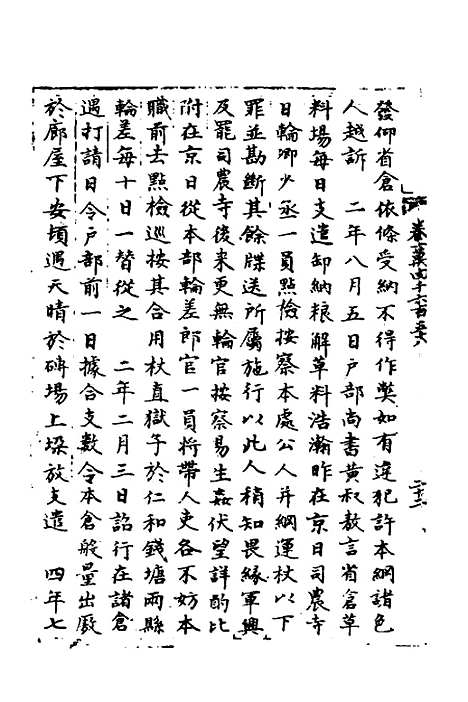 發仰省倉依條受納不得作弊如有違犯許本綱諸色
人越訴　二年八月五日戶部尚書黃叔敖言省倉草
料場每日支遣卸納粮解草料浩瀚昨在京日司農寺
日輪卿少丞一員點檢按察本處公人并綱運杖以下
罪並勘斷其餘牒送所屬施行以此人稍知畏緣軍興
及罷司農寺後來更無輪官按察易生姦伏望詳酌比
附在京日從本部輪差郎官一員將帶人吏各不妨本
職前去點檢巡按其合用杖直獄子於仁和錢塘兩縣
輪差每十日一替從之　二年二月三日詔行在諸倉
遇打請日令戶部前一日據合支數令本倉般量出厫
於廊屋下安頓遇天晴於磚場上垜放支遣　四年七